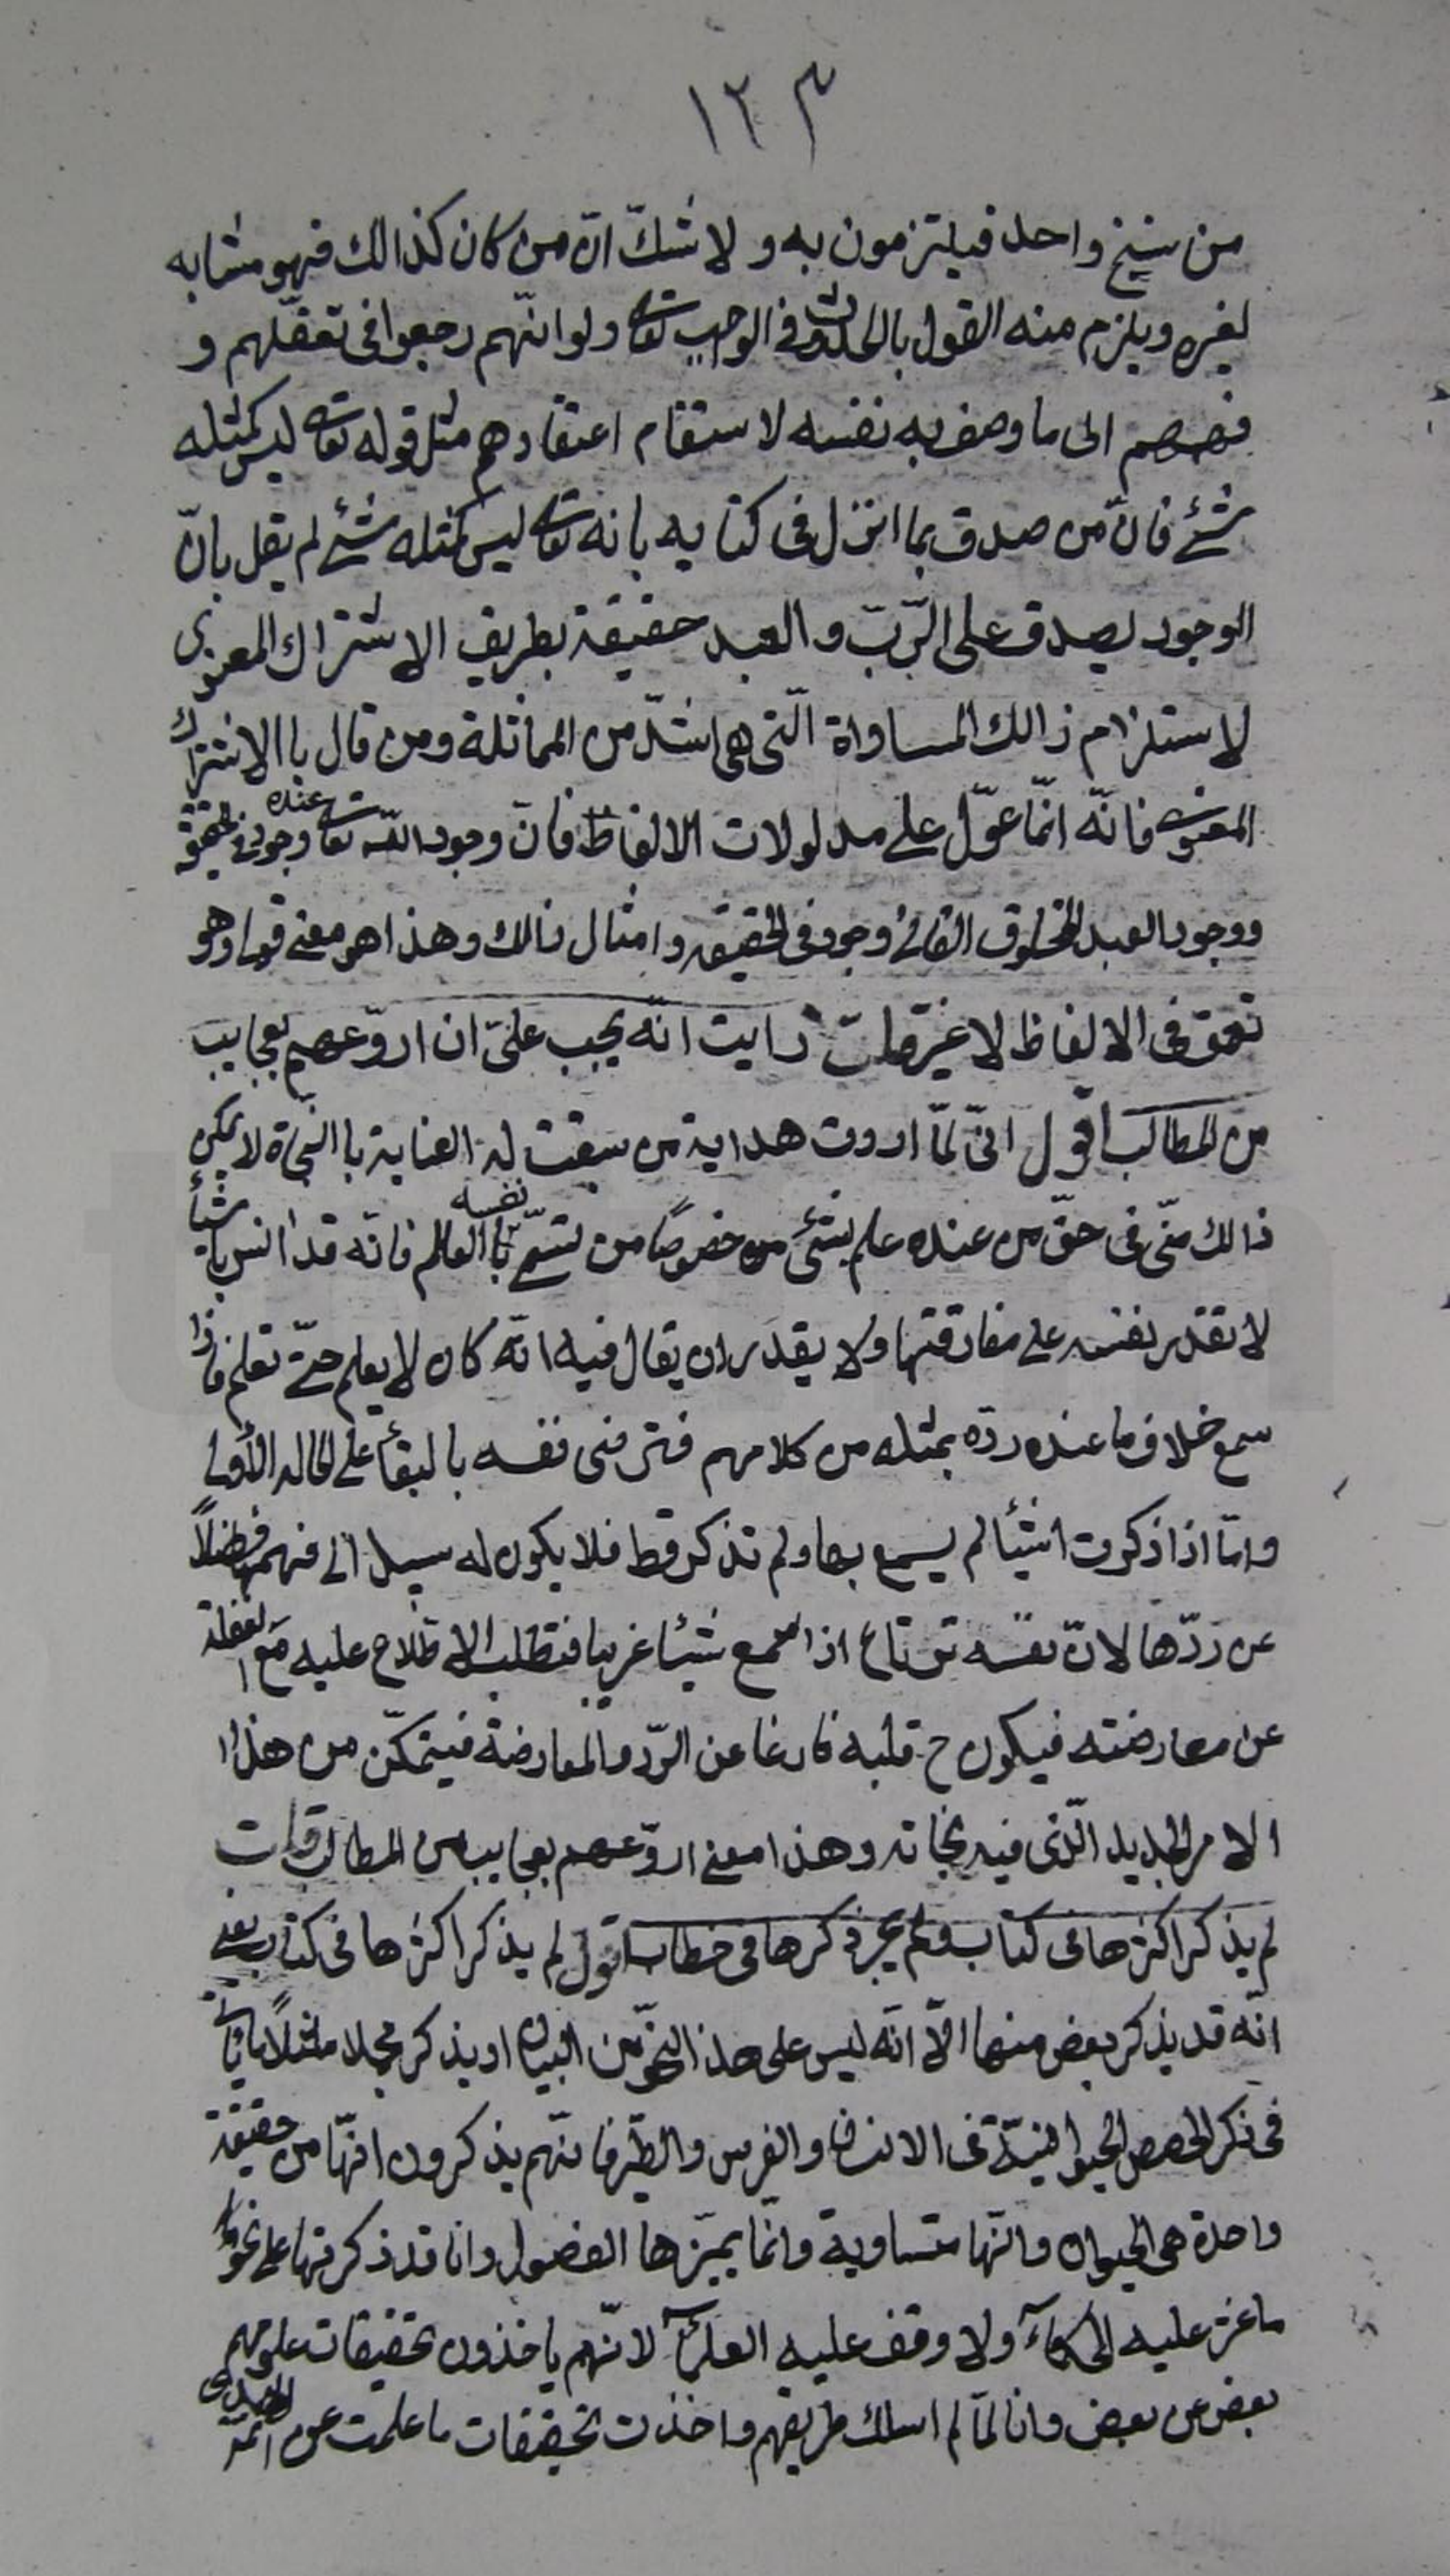 ١٢٣
من سنخ واحد فيلتزمون به و لا شكّ انّ من كان كذالك فهو مشابه
لغيره ويلزم منه القول بالحدوث في الواجب تعالى ولو انّهم رجعوا في تعقّلهم و
فهمهم الى ما وصف به نفسه لاستقام اعتقادهم مثل قوله تعالى ليس كمثله
شئ فانّ من صدق بما انزل فى كتابه بانه تعالى ليس كمثله شئ لم يقل بانّ
الوجود يصدق على الرّبّ و العبد حقيقة بطريق الاشتراك المعنوى
لاستلزام ذالك المساواة الّتى هى اشدّ من المماثلة ومن قال باالاشتراك
المعنوى فانّه انّما عوّل على مدلولات الالفاظ فانّ وجود اللّه تعالى عنده وجود فى الحقيقة
ووجود العبد المخلوق الفانى وجود فى الحقيقه و امثال ذالك وهذا هو معنى قولى وهو
تعمق فى الالفاظ لا غير قلت رايت انّه يجب علىّ ان اروّعهم بعجايب
من المطالب اقول انّى لمّا اردت هداية من سبقت له العناية باالنّجاة لا يمكن
ذالك منّى فى حقّ من عنده علم بشئ خصوصًا من تسمّى نفسه باالعالم فانّه قد انس باشيأ
لا تقدر نفسه على مفارقتها ولا يقدر ان يقال فيه انّه كان لا يعلم حتّى تعلم فاذا
سمع خلاف ما عنده ردّه بمثله من كلامهم فترضى نفسه بالبقأ على الحاله الأولى
وامّا اذا ذكرت اشيأ لم يسمع بها ولم تذكر قط فلا يكون له سبيل الى فهمها فضلاً
عن ردّها لانّ نفسه ترتاع اذا سمع شيئا غريبا فتطلب الاطلاع عليه مع الغفلة
عن معارضته فيكون ح قلبه فارغا عن الرّد والمعارضة فيتمكّن من هذا
الامر الجديد الّذى فيه نجاته وهذا معنى اروّعهم بعجايب من المطالب قلت
لم يذكر اكثرها فى كتاب ولم يجر ذكرها فى خطاب اقول لم يذكر اكثرها فى كتاب يعنى
انّه قد يذكر بعض منها الّا انّه ليس على هذا النحو من البيان او يذكر مجملا مثلاً يأتى
فى ذكر الحصص الحيوانيّة فى الانسان والفرس والطّير فانّهم يذكرون انّها من حقيقة
واحدة هى الحيوان وانّها متساوية وانّما يميّزها الفصول وانا قد ذكرتها على نحو
ما عثر عليه الحكمآء ولا وقف عليه العلمآء لانّهم ياخذون تحقيقات علومهم
بعض عن بعض وانا لمّا لم اسلك طريقهم واخذت تحقيقات ما علمت عن ائمّة الهدى